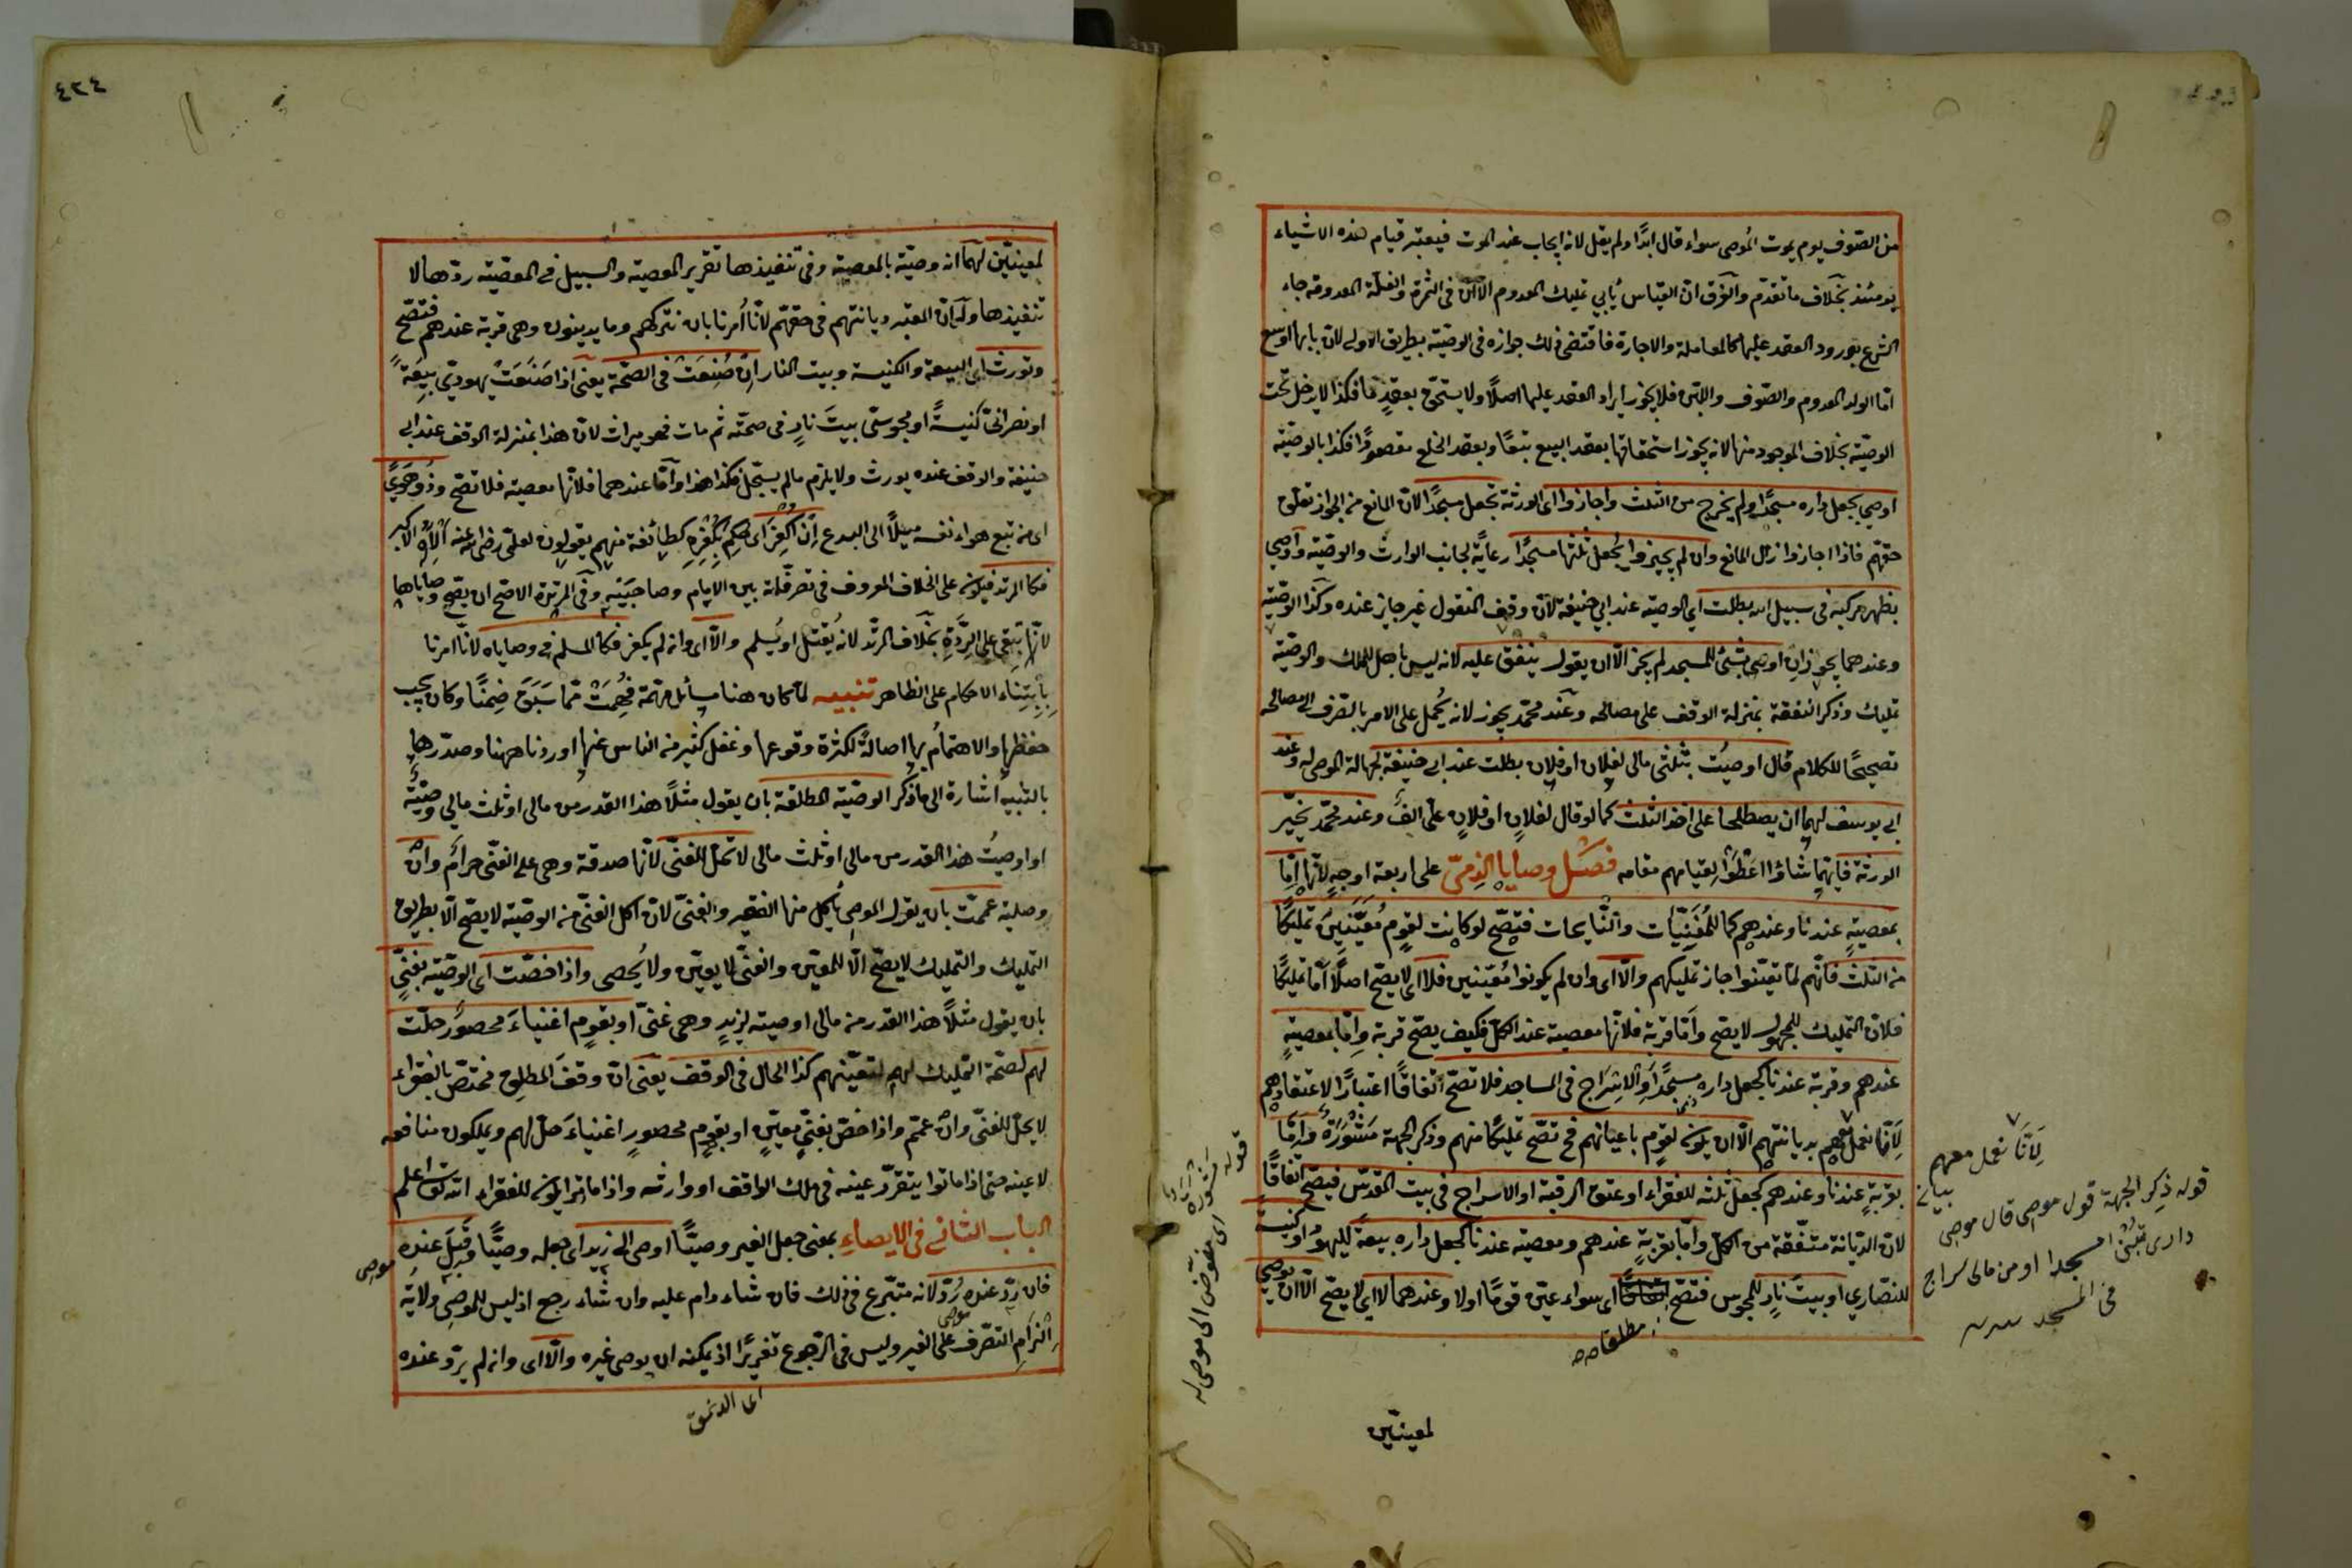 من الصّوف يوم يموت الموصى سواء قال ابدًا ولم يقل لانه ايجاب عند الموت فيعتبر قيام هذه الاشياء
يومئذ بخلاف ما تقدّم والفرق انّ القياس يأبي تمليك المعدوم الّا انّ فى الثمرة والغلّة المعدومة جاء
الشرع بورود العقد عليها كالمعاملة والاجارة فاقتضى ذلك جوازه فى الوصيّة بطريق الاولى لانّ بابها اوسع
امّا الولد المعدوم والصّوف واللبن فلا يجوز ايراد العقد عليها اصلًا ولا يستحقّ بعقدٍ ما فكذا لا يدخل تحت
الوصيّة بخلاف الموجود منها لانه يجوز استحقاقها بعقد البيع تبعًا وبعقد الخلع مقصودًا فكذا بالوصيّة
اوصى بجعل داره مسجدًا ولم يخرج من الثلث واجازوا اى الورثة تجعل مسجدًا لانّ المانع من الجواز تعلّق
حقهّم فاذا اجازوا زال المانع وان لم يجيزوا يُجعل ثلثها مسجدًا رعايةً لجانب الوارث والوصيّة وأوصى
بظهر مركبه فى سبيل الله بطلت اى الوصيّة عند ابي حنيفة لانّ وقف المنقول غير جايز عنده وكذا الوصيّة
وعندهما يجوزان اوصى بشئ للمسجد لم يجز الّا ان يقول ينفق عليه لانه ليس باهل للملك والوصيّة
تمليك وذكر النفقة بمنزلة الوقف على مصالحه وعند محمّد يجوز لانه يُحمل على الامر بالصّرف الى مصالحه
تصحيحًا للكلام قال اوصيتُ بثلثى مالى لفلان او فلان بطلت عند ابي حنيفة لجهالة الموصى له وعند
ابي يوسف لهما ان يصطلحا على اخذ الثلث كما لو قال لفلانٍ او فلانٍ علىّ الفٌ وعند محمّد يخيّر
الورثة فايّهما شاؤا اعطَوْا لقيامهم مقامه فصل وصايا الذمّى على اربعة اوجهٍ لانّها امّا
بمعصيةٍ عندنا وعندهم كما للمُغَنِّيَات والنّايحات فتصحّ لو كانت لقومٍ مُعَيَّنِينَ تمليكًا
من الثلث فانّهم لمّا تعيّنوا جاز تمليكهم والّا اى وان لم يكونوا مُعيّنين فلا اى لا يصحّ اصلًا امّا تمليكًا
فلانّ التمليك للمجهول لا يصحّ وامّا قربة فلانّها معصية عند الكلّ فكيف يصحّ قربة وامّا بمعصيةٍ
عندهم وقربة عندنا كجعل داره مسجدًا او الاسراج فى المساجد فلا تصحّ اتفاقًا اعتبارًا لاعتقادهم
لأنّا نعمل معهم بديانتهم الّا ان يكون لقومٍ باعيانهم فح تصحّ تمليكًا منهم وذكر الجهة مَشْوَرَةٌ وامّا
بقربةٍ عندنا وعندهم كجعل ثلثه للفقراء او عتق الرقبة او الاسراج فى بيت المقدّس فيصحّ اتفاقًا
لانّ الديانة متّفقة من الكلّ وامّا بقربةٍ عندهم ومعصية عندنا كجعل داره بيعة لليهود او كنيسة
للنصّاري او بيت نارٍ للمجوس فتصحّ اى سواء عيّن قومًا اولا وعندهما لا اى لا يصحّ الّا ان يوصى
مطلقا صح
لمعينّين
لأنّا نعمل معهم
بيانه
قوله ذكر الجهة قول موصى قال موصى
دارى مسجدا او من مالى سراج
فى المسجد
قوله مَشْوَرَةٌ اى مفوّض الى موصى له
٤٢٤
لمعينيّن لهما انه وصيّة بالمعصية وفى تنفيذها تقرير المعصية والسبيل فى المعصية ردّها لا
تنفيذها وله انّ المعتبر ديانتهم فى حقهّم لانّا أُمرنا بان نتركهم وما يدينون وهى قربة عندهم فتصحّ
وتورث اى البيعة والكنيسة وبيت النار ان صُنِعَتْ فى الصّحّة يعنى اذا صَنَعَتْ يهودىّ بِيعَةً
او نصرانىّ كنيسةً او مجوسىّ بيتَ نارٍ فى صحّته ثم مات فهو ميراث لانّ هذا بمنزلة الوقف عند ابى
حنيفة والوقف عنده يورث ولا يلزم مالم يسجّل فكذا هذا وامّا عندهما فلانّها معصية فلا تصحّ وذُو هوىً
اى من تبع هواء نفسه ميلًا الى البدع ان أُكْفِرَ اى حُكِمَ بكُفْرِهِ كطائفة منهم يقولون لعلىّ رضى الله عنه الاكبر
فكالمرتد فيكون على الخلاف المعروف فى تصرفاته بين الامام وصاحبَيْهِ وفى المرتدّة الاصحّ ان يصحّ وصاياها
لانّها تبقى على الرِّدَّةِ بخلاف المرتّد لانه يُقتل او يُسلم والّا اى وان لم يكفر فكالمسلم فى وصاياه لانّا امرنا
بِابْتِنَاء الاحكام على الظاهر تنبيه لمّا كان هنا مسائل مهمّة فُهِمَتْ ممّا سَبَقَ ضِمنًا وكان يجب
حفظها والاهتمام بها اصالةً لكثرة وقوعها وغفل كثير من الناس عنها اوردناها ههنا وصدّرها
بالتنبيه اشارة الى ما ذُكر الوصيّة المطلقة بان يقول مثلًا هذا القدر من مالى او ثلث مالى وصيّة
او اوصيتُ هذا القدر من مالى او ثلث مالى لا تحلّ للغنىّ لانّها صدقة وهى على الغنّى حرام وان
وصلية عممّت بان يقول الموصى يأكل منها الفقير والغنىّ لانّ اكل الغنىّ من الوصيّة لا يصحّ الّا بطريق
التمليك والتمليك لا يصحّ الّا للمعيّن والغنىّ لا يعيّن ولا يُحصى واذا خصّت اى الوصّية بغنىٍّ
بان يقول مثلًا هذا القدر من مالى اوصيته لزيدٍ وهى غنىّ او بقومٍ اغنياءَ محصورٍ حلّت
لهم لصحّة التمليك لهم لتعيّنهم كذا الحال فى الوقف يعنى انّ وقف المطلق مختصّ بالفقراء
لا يحلّ للغنىّ وان عمّم واذا خصّ بغنىٍّ معيّنٍ او بقومٍ محصورٍ اغنياءَ حلّ لهم ويملكون منافعه
لا عينه حتى اذا ماتوا يتقرّر عينه فى ملك الواقف او وارثه واذا ماتوا يكون للفقراء
الباب الثانى فى الايصاءِ بمعنى جعل الغير وصيًّا اوصى الى زيد اى جعله وصيًّا وقَبِلَ عنده
موصى
فان ردّ عنده رُدّ لانه متبّرع فى ذلك فان شاء دام عليه وان شاء رجع اذ ليس للموصى ولاية
موصى
الزام التصّرف على الغير وليس فى الرّجوع تغريرًا اذ يمكنه ان يوصى غيره والّا اى وان لم يردّ عنده